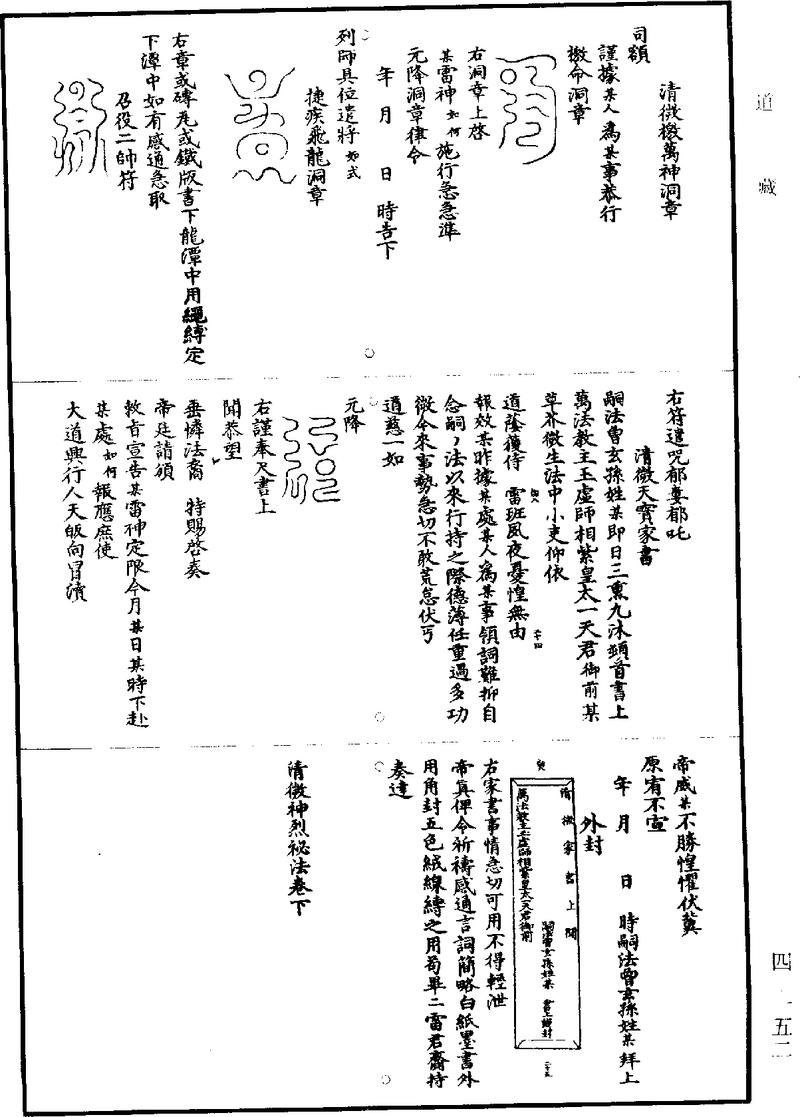 道藏
清微檄萬神洞章
司額
謹據某人為某事恭行
檄命洞章
右洞章上啓
某雷神如何施行急急準
元降洞章律令
年月 日 時告下
列師具位遣將如式
捷疾飛龍洞章
右章或磚瓦或鐵版書下龍潭中用繩縛定
下潭中如有感通急取
召役二帥符
右符遣咒郁婁郁吒
清微天寶家書
嗣法曾玄孫姓某即日三熏九沐頓首書上
萬法教主玉虛師相紫皇太一天君御前某
草芥微生法中小吏仰依
道蔭獲侍 雷班夙夜憂惶無由
報效某昨據某處某人為某事領詞難抑自
念嗣法以來行持之際德薄任重過多功
微今來事勢急切不敢荒怠伏丐
道慈一如
元降
右謹奉尺書上
聞恭望
垂憐法裔 特賜啓奏
帝廷請頒
敕旨宣告某雷神定限今月某日某時下赴
某處如何報應庶使
大道興行人天皈向冒瀆
帝威某不勝惶懼伏冀
原宥不宣
年月 日 時嗣法曾玄孫姓某拜上
外封
清微家書上聞
嗣法曾玄孫姓某 謹封
萬法教主玉虛師相紫皇太一天君御前
右家書事情急切可用不得輕泄
帝真俾令祈禱感通言詞簡略白紙墨書外
用角封五色絨線縛之用苟畢二雷君齎持
奏達
清微神烈祕法卷下
四 五二